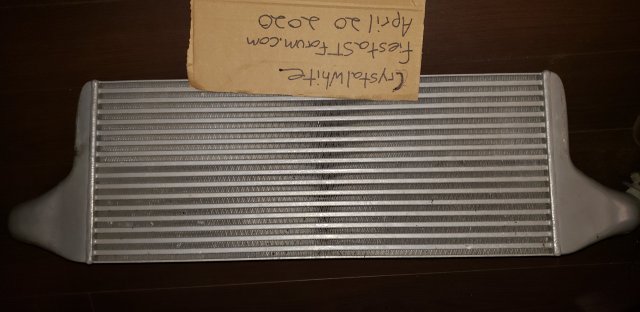 CrystalWhite
FiestaSTForum.com
April 20 2020